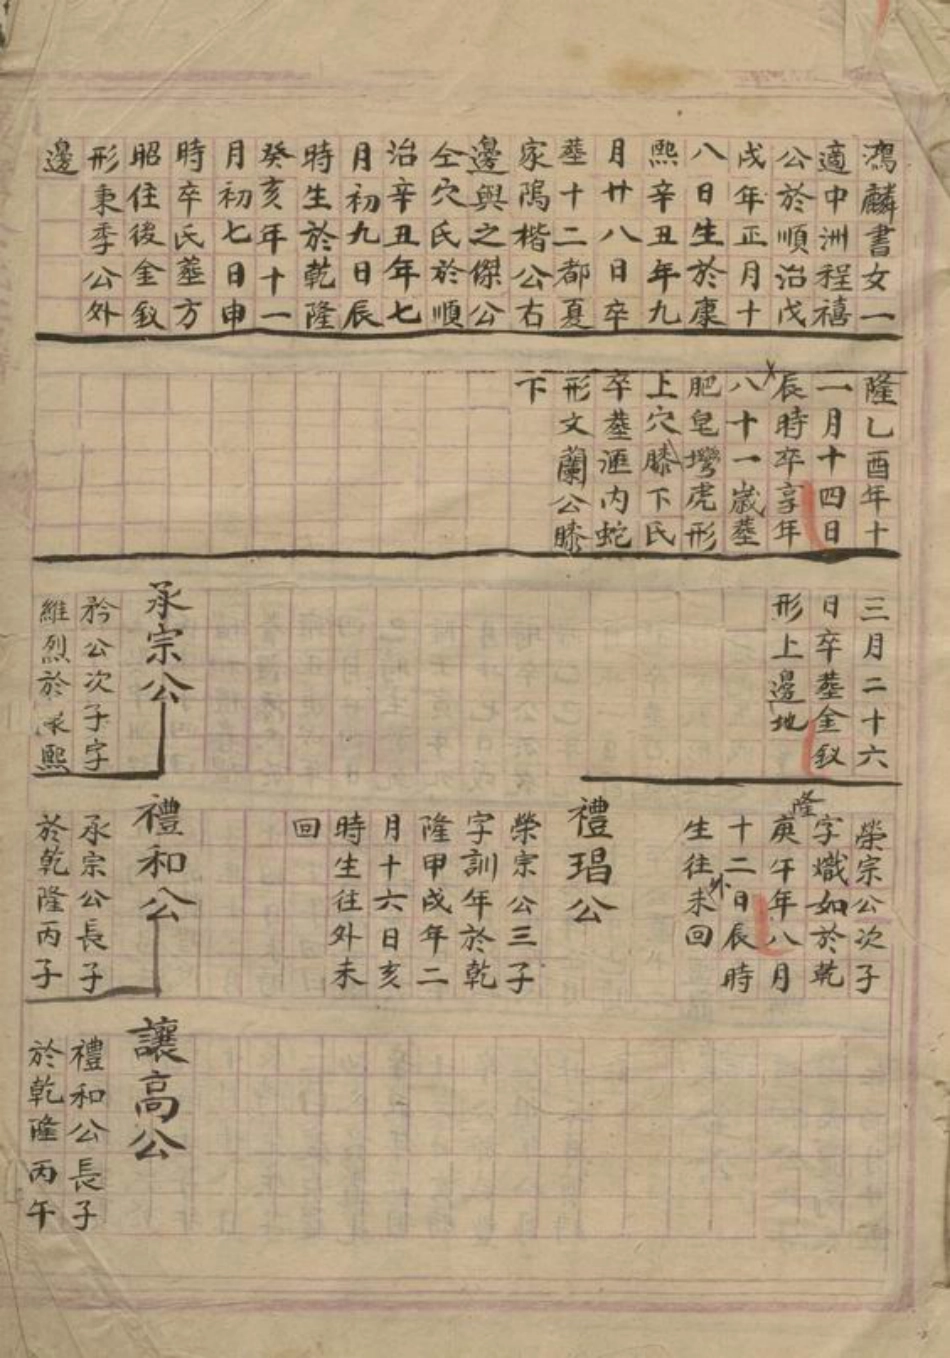 鴻麟書女一
適中洲程禧
公於順治戊
戌年正月十
八日生於康
熙辛丑年九
月廿八日卒
塟十二都夏
家隖楷公右
邊與之傑公
仝穴氏於順
治辛丑年七
月初九日辰
時生於乾隆
癸亥年十一
月初七日申
時卒氏塟方
昭住後金釵
形秉季公外
邊
隆乙酉年十
一月十四日
辰時卒享年
八十一歲塟
肥皂塆虎形
上穴膝下氏
卒塟滙内蛇
形文蘭公膝
下
三月二十六
日卒塟金釵
形上邊地
承宗公
矜公次子字
維烈於康熙
榮宗公次子
字熾如於乾
隆
庚午年八月
十二日辰時
生往外未回
禮琩公
榮宗公三子
字訓年於乾
隆甲戌年二
月十六日亥
時生往外未
回
禮和公
承宗公長子
於乾隆丙子
讓高公
禮和公長子
於乾隆丙午